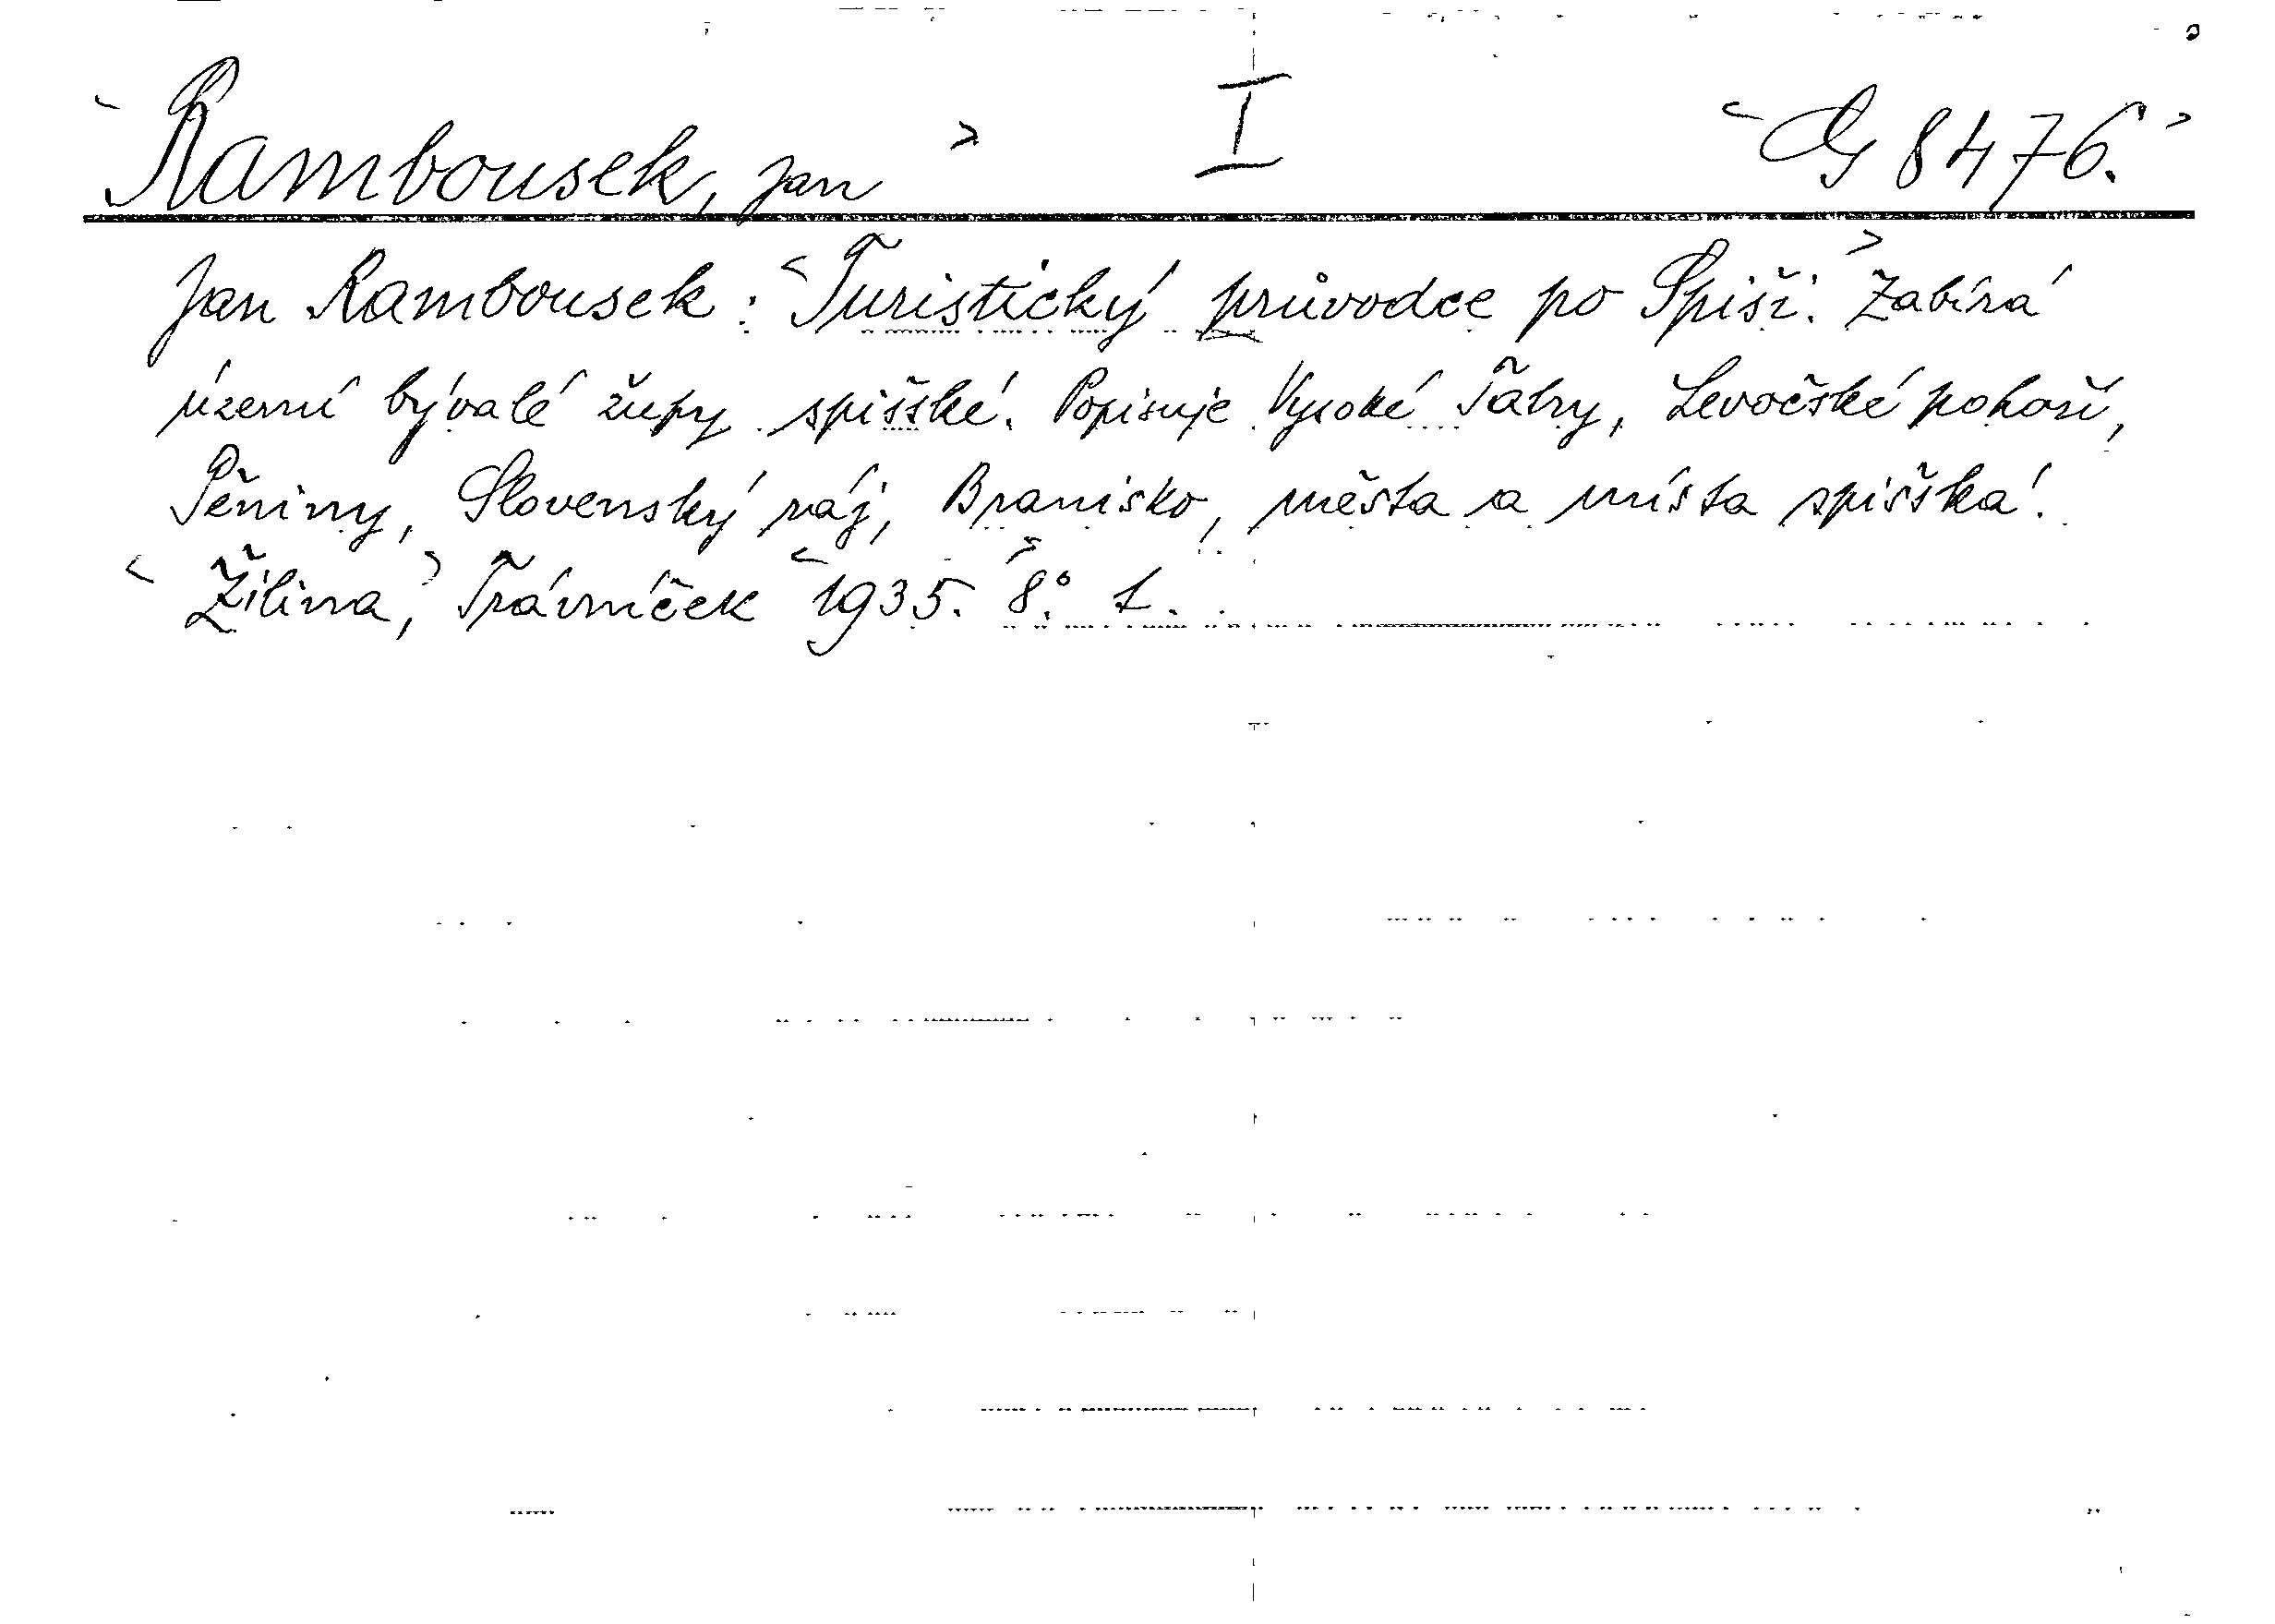 <Rambousek, Jan> I <G 8476.>
Jan Rambousek: <Turistický průvodce po Spiši.> Zabírá
území bývalé župy spišské. Popisuje Vysoké Tatry, Levočské pohoří,
Pěniny, Slovenský ráj, Branisko, města a místa spišská.
<Žilina,> Trávníček <1935.> 8° 1.